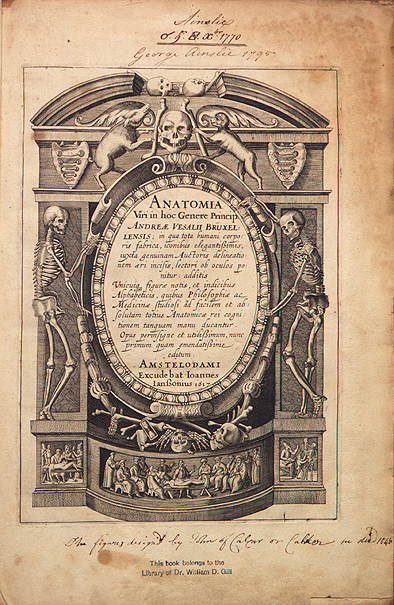 Ainslie
1770
George Ainslie 1795
ANATOMIA
Viri in hoc Genere Princip.
ANDREÆ VESALII BRUXEL-
LENSIS; in qua tota humani corpo-
ris fabrica, iconibus elegantissimis,
iuxta genuinam Auctoris delineatio-
nem æri incisis, lectori ob oculos po-
nitur: additis
Unicuiq. figuræ notis, et indicibus
Alphabeticis, quibus Philosophiæ ac
Medicinæ studiosi ad facilem et ab
solutam totius Anatomicæ rei cogni
tionem tanquam manu ducantur
Opus perinsigne et utilissimum, nunc
primum quam emendatissime
editum.
AMSTELODAMI
Excudebat Ioannes
Ianssonius 1617
The figures design'd by of Calcar or in died 1546
This book belongs to the
Library of Dr. William D. Gill